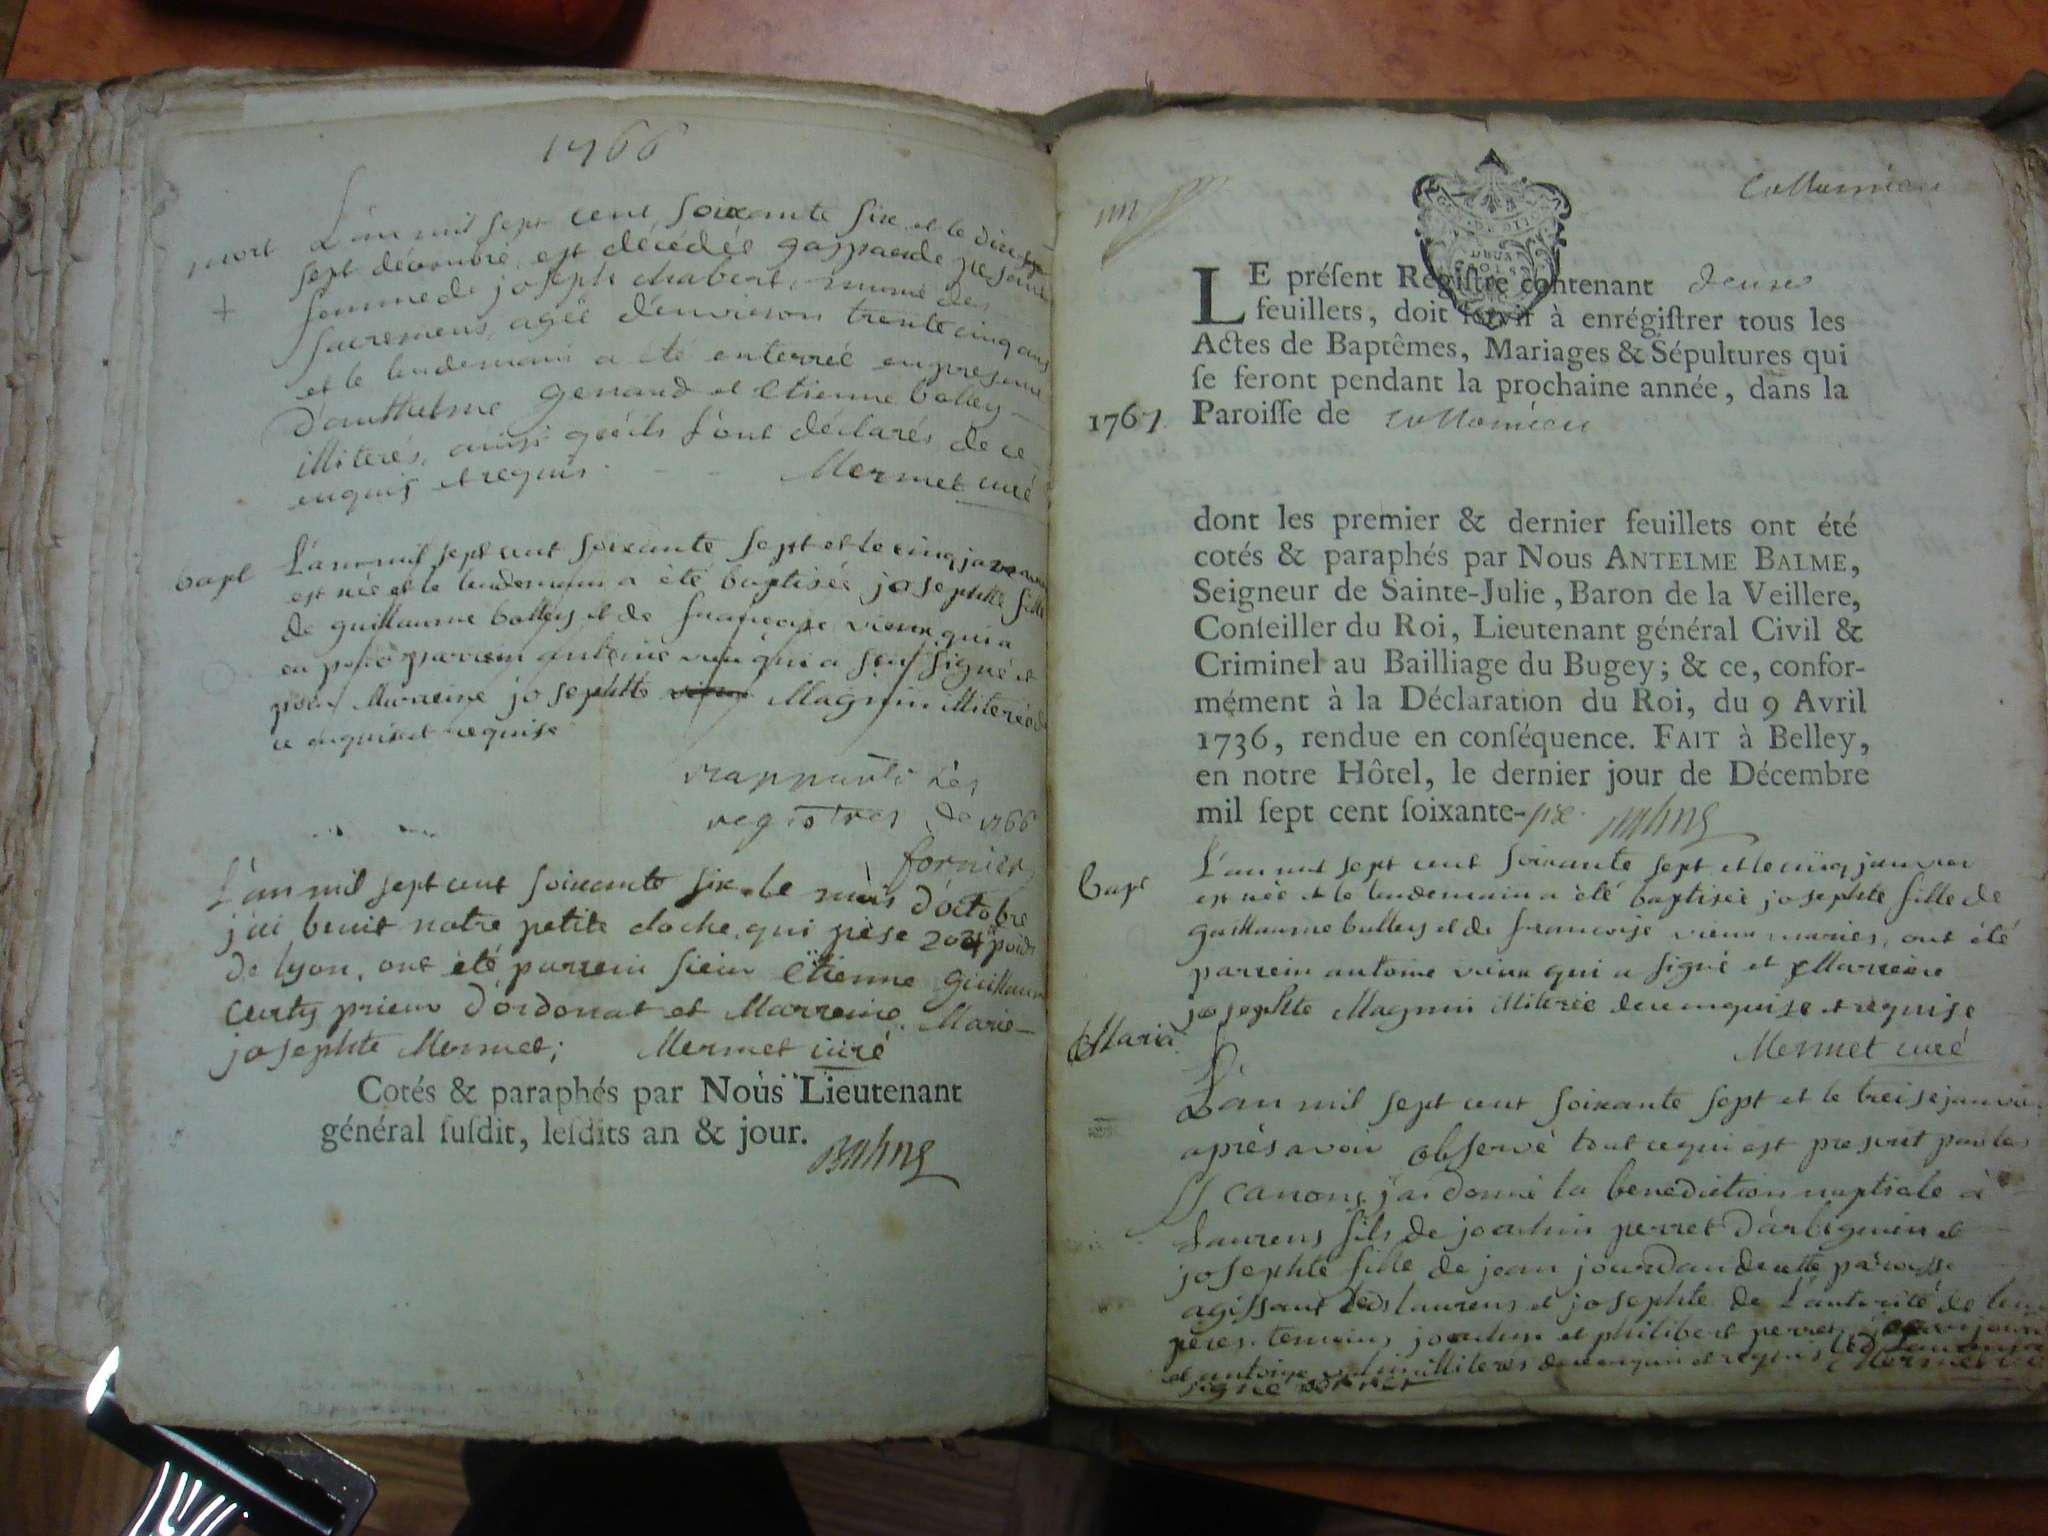 1766
mort L'an mil sept cent soixante six et le dix
sept décembre est décédée gasparde
femme de joseph chabert, munie des
sacremens, agée d'environ trente cinq ans
et le lendemain a été enterrée en presence
d'anthelme genand et Etienne bolley
illiterés, ainsi qu'ils l'ont déclarés de ce
enquis et requis. Mermet curé
bapt L'an mil sept cent soixante sept et le cinq janvier
est née et le lendemain a été baptisée josephte fille
de guillaume bolley et de francoise vieux qui a
eu pour parrein antoine vieux qui a seul signé et
pour Marreine josephte Magnin illiterée de
ce enquise et requise
rapporté les
registres de 1766
fornier
L'an mil sept cent soixante six le mois d'octobre
j'ai benit notre petite cloche qui pèse poids
de lyon, ont été parrein sieur Etienne guillaume
Curty prieur d'ordonnat et Marreine Marie
josephte Mermet; Mermet curé
Cotés & paraphés par Nous Lieutenant
général ſuſdit, leſdits an & jour.
Balme
Collomieu
LE préſent Regiſtre contenant deux
feuillets, doit ſervir à enrégiſtrer tous les
Actes de Baptêmes, Mariages & Sépultures qui
ſe feront pendant la prochaine année, dans la
1767 Paroiſſe de Collomieu
dont les premier & dernier feuillets ont été
cotés & paraphés par Nous ANTELME BALME,
Seigneur de Sainte-Julie, Baron de la Veillere,
Conſeiller du Roi, Lieutenant général Civil &
Criminel au Bailliage du Bugey; & ce, confor-
mément à la Déclaration du Roi, du 9 Avril
1736, rendue en conſéquence. FAIT à Belley,
en notre Hôtel, le dernier jour de Décembre
mil ſept cent ſoixante-six. Balme
bapt L'an mil sept cent soixante sept et le cinq janvier
est née et le lendemain a été baptisée josephte fille de
guillaume bolley et de francoise vieux mariés, ont été
parrein antoine vieux qui a signé et Marreine
josephte Magnin illiterée de ce enquise et requise
Mermet curé
Maria. L'an mil sept cent soixante sept et le treise janvier
après avoir observé tout ce qui est prescrit par les
SS canons, j'ai donné la benediction nuptiale à
Laurens fils de joachim perret d'arbignieu et
josephte fille de jean jourdan de cette paroisse
agissant lesds laurens et josephte de l'autorité de leurs
pères. temoins joachim et philibert perret,
et antoine illiteres de ce enquis et requis led laurens
signé perret Mermet curé